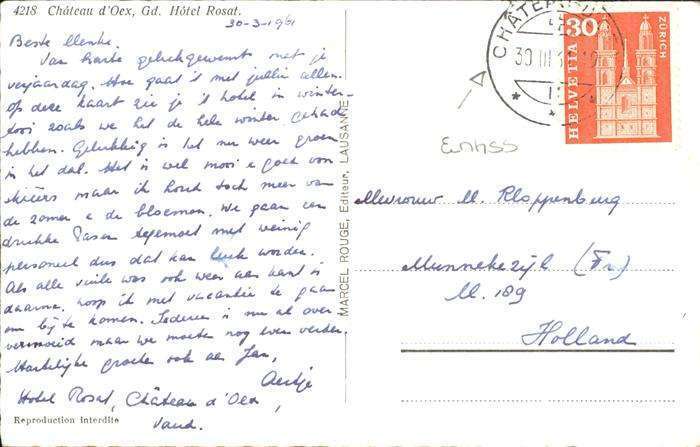 4218 Château d'Oex, Gd. Hôtel Rosat.
30-3-1961
Beste Menke
Van harte gelukgewenst met je
verjaardag. Hoe gaat 't met jullie allen.
op deze kaart zie je 't hotel in winter-
tooi zoals we het de hele winter gehad
hebben. Gelukkig is het nu weer groen
in het dal. Het is wel mooi e goed voor
skiërs maar ik houd toch meer van
de zomer e de bloemen. We gaan een
drukke Pasen tegemoet met weinig
personeel dus dat kan leuk worden.
Als alle vuile was ook weer aan kant is
daarna, hoop ik met vacantie te gaan
om bij te komen. Iedereen is nu al over
vermoeid maar we moeten nog even verder.
Hartelijke groeten ook aan Jan,
Aeltje
Hotel Rosat, Château d'Oex,
Vaud.
Reproduction interdite
MARCEL ROUGE, Editeur, LAUSANNE
CHÂTEAU
30 III
30
HELVETIA
ZÜRICH
Mevrouw M. Kloppenburg
Munnekezijl (Fr)
M. 189
Holland